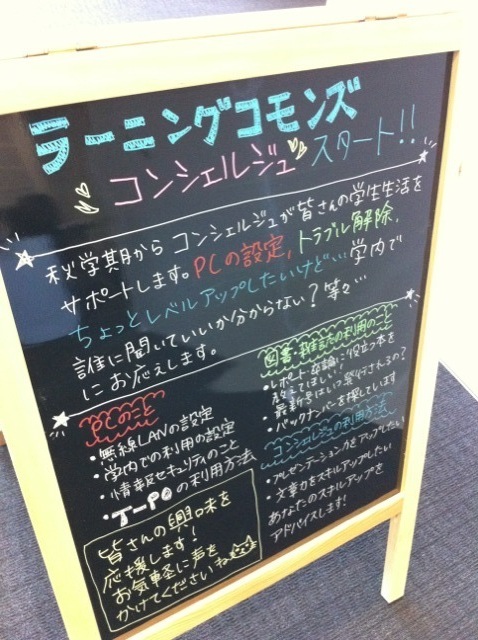 ラーニングコモンズ
コンシェルジュ スタート!!
秋学期から コンシェルジュが皆さんの学生生活を
サポートします。PCの設定,トラブル解除,
ちょっとレベルアップしたいけど… 学内で
誰に聞いていいか分からない?等々…
にお応えします。
PCのこと
・無線LANの設定
・学内での利用の設定
・情報セキュリティのこと
・T-POの利用方法
皆さんの興味を
応援します!
お気軽に声を
かけてくださいね
図書・雑誌の利用のこと
・レポート・卒論に役立つ本を
教えてほしい!
・最新号はいつ発行されるの?
・バックナンバーを探しています
コンシェルジュの利用方法
・プレゼンテーション力をアップしたい
・文章力をスキルアップしたい
あなたのスキルアップを
アドバイスします!